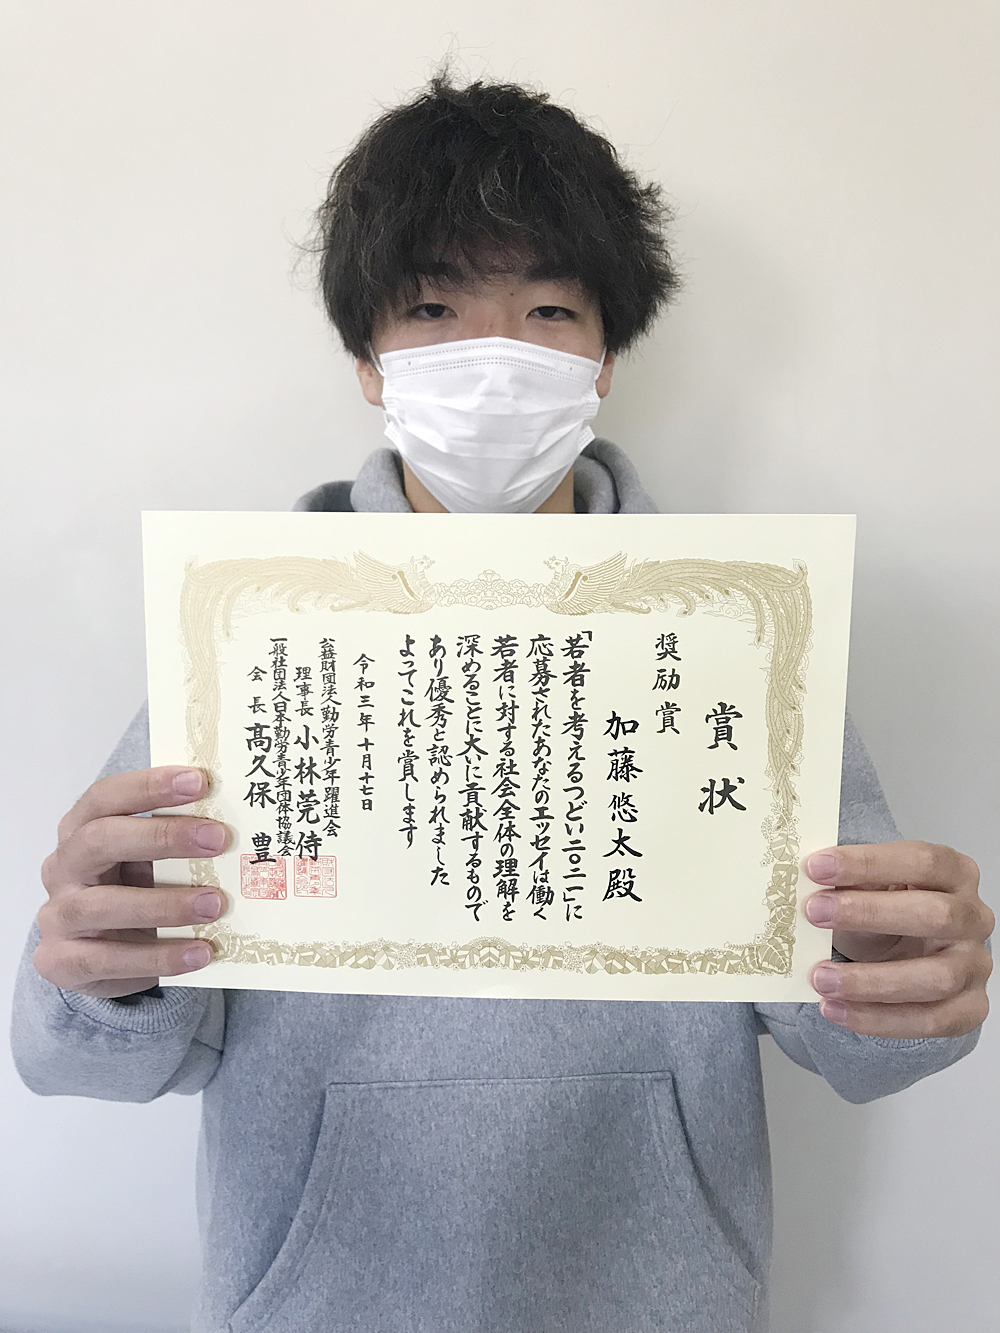 賞状
奨励賞
加藤悠太殿
「若者を考えるつどい二〇二一」に
応募されたあなたのエッセイは働く
若者に対する社会全体の理解を
深めることに大いに貢献するもので
あり優秀と認められました
よってこれを賞します
令和三年十月十七日
公益財団法人勤労青少年躍進会
理事長 小林莞侍
一般社団法人日本勤労青少年団体協議会
会長 髙久保豊